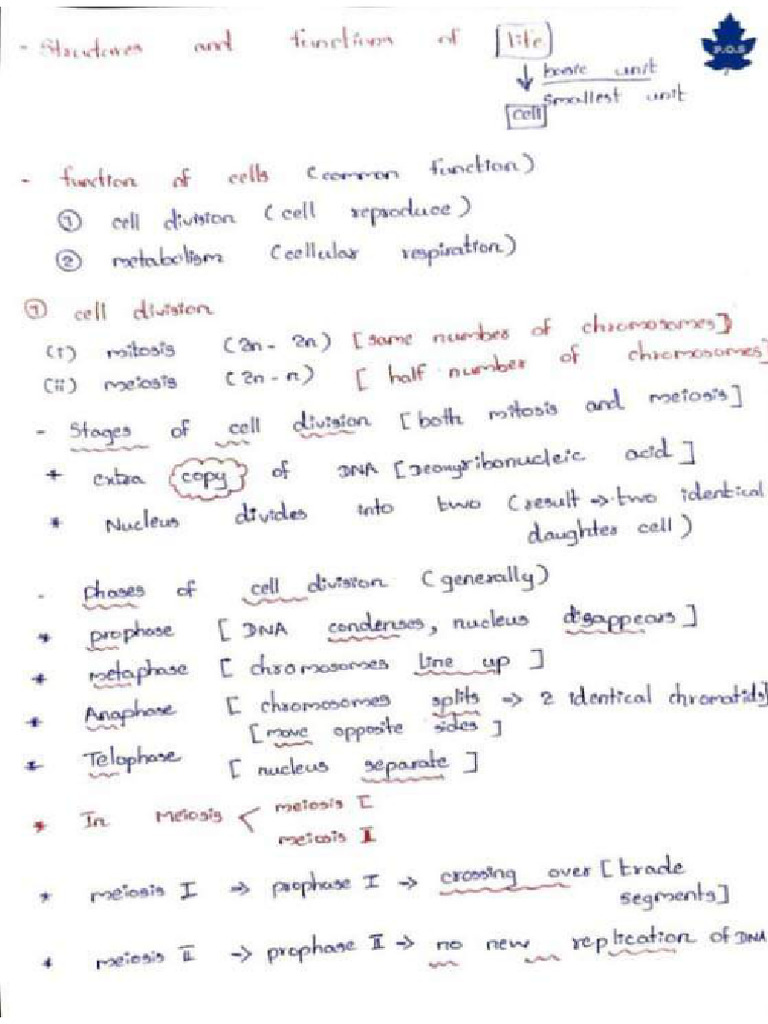 - Structures and functions of life
P.O.S
↓ basic unit
smallest unit
cell
- function of cells (common function)
① cell division (cell reproduce)
② metabolism (cellular respiration)
① cell division
(i) mitosis (2n - 2n) [same number of chromosomes]
(ii) meiosis (2n - n) [half number of chromosomes]
- Stages of cell division [both mitosis and meiosis]
* extra copy of DNA [Deoxyribonucleic acid]
* Nucleus divides into two (result → two identical
daughter cell)
- phases of cell division (generally)
* prophase [DNA condenses, nucleus disappears]
* metaphase [chromosomes line up]
* Anaphase [chromosomes splits → 2 identical chromatids]
[move opposite sides]
* Telophase [nucleus separate]
* In Meiosis < meiosis I
meiosis II
* meiosis I → prophase I → crossing over [trade
segments]
* meiosis II → prophase II → no new replication of DNA